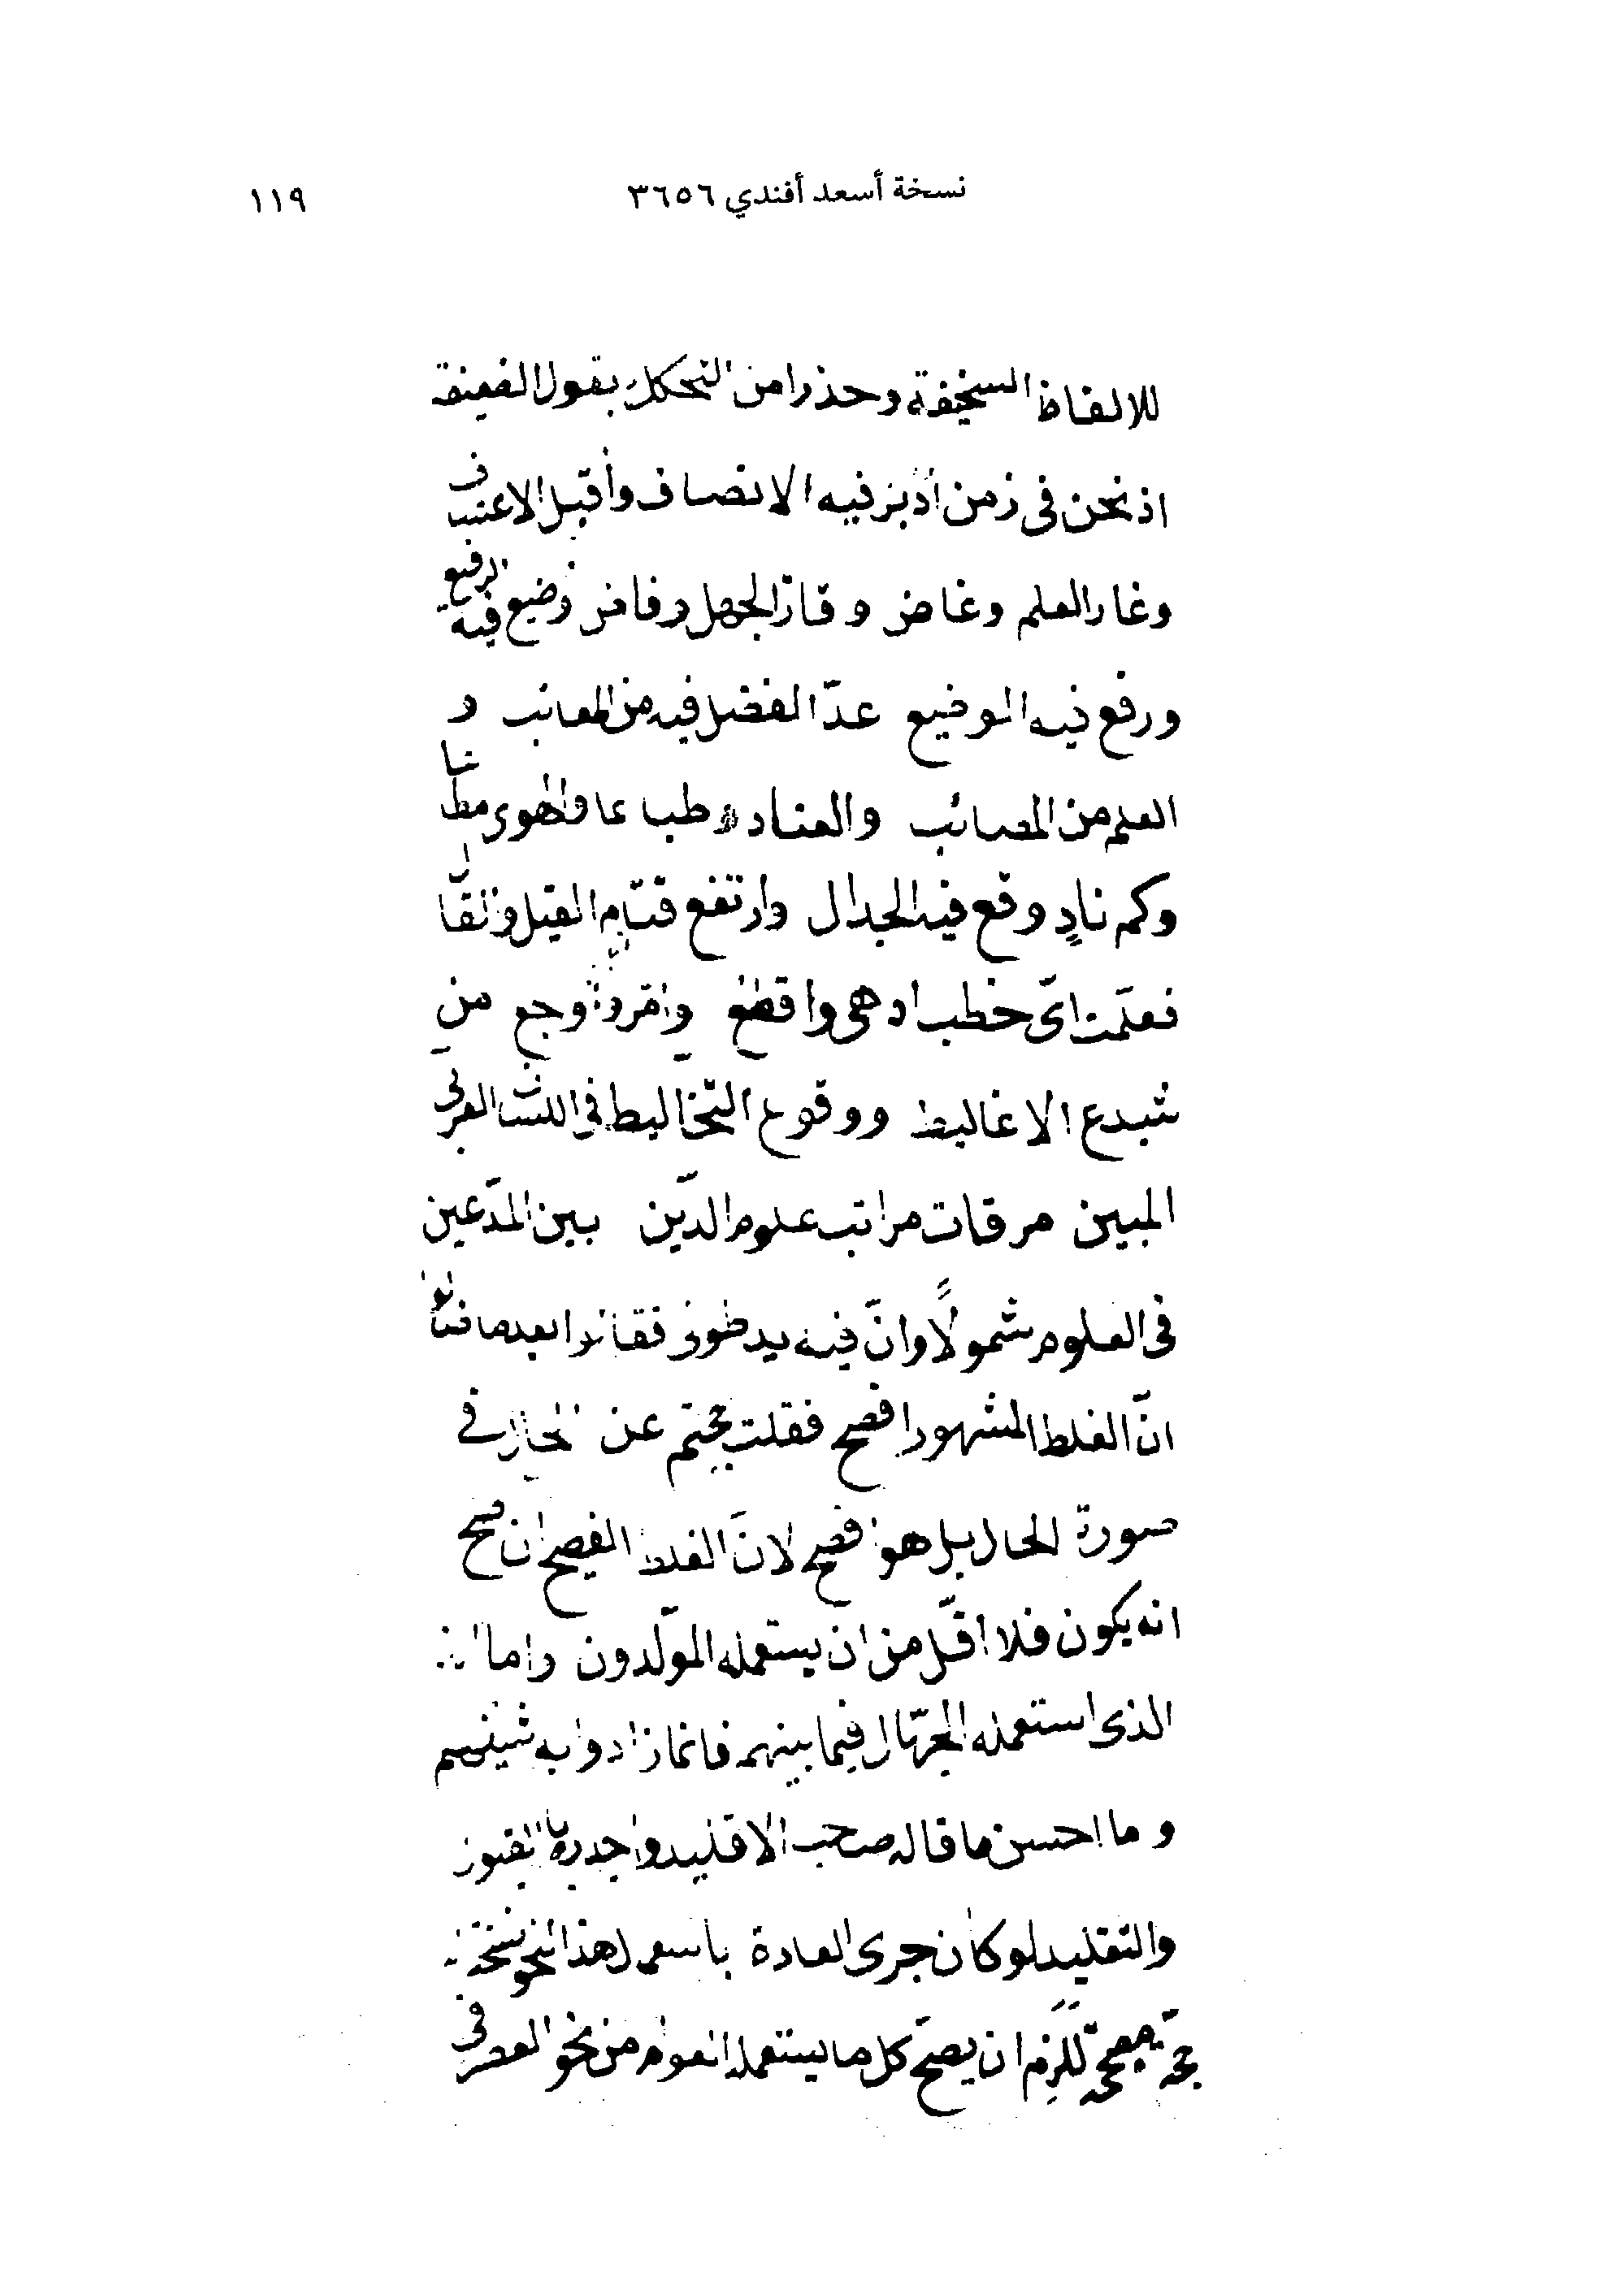 نسخة أسعد أفندي ٣٦٥٦
١١٩
للالفاظ السخيفة وحذرا من التحكك بقول الفيهقة
اذ نحن فى زمن أدبر فيه الانصاف وأقبل الاعتساف
وغار العلم وغاض وفار الجهل وفاض وضيع فيه الرفيع
ورفع فيه الوضيع عدّ الفضل فيه من المعائب و
العلم من المصائب والعناد طباعا والهوى مطاعا
وكم نادٍ وقع فيه الجدال وارتفع قتام القيل والقال
فعلّمت اىّ خطب ادهى واقطع وامرّ واوجع من
تبدع الاغاليط ووقوع التخاليط فى اللسان العربى
المبين مرقات مراتب علوم الدّين بين المدّعين
فى العلوم شمولًا وانّ فيه يد طولى فقالوا بعدما قالوا
انّ الغلط المشهور افصح فقلت عن المحال فى
صورة الحال بل هو افصح لانّ الغلط الفصيح ان صح
انه يكون فلا اقلّ من ان يستعمله المولّدون واما
الذى استعمله الجهّال فيما بينهم فانما زادوا به شينهم
وما احسن ما قاله صاحب الاقليد واجدره بالقبول
والتقليد لو كان جرى العادة باسعمال هذا النحو
حجّة مصححة للزم ان يصحّ كل ما يستعمله العوام من نحو العصر فى